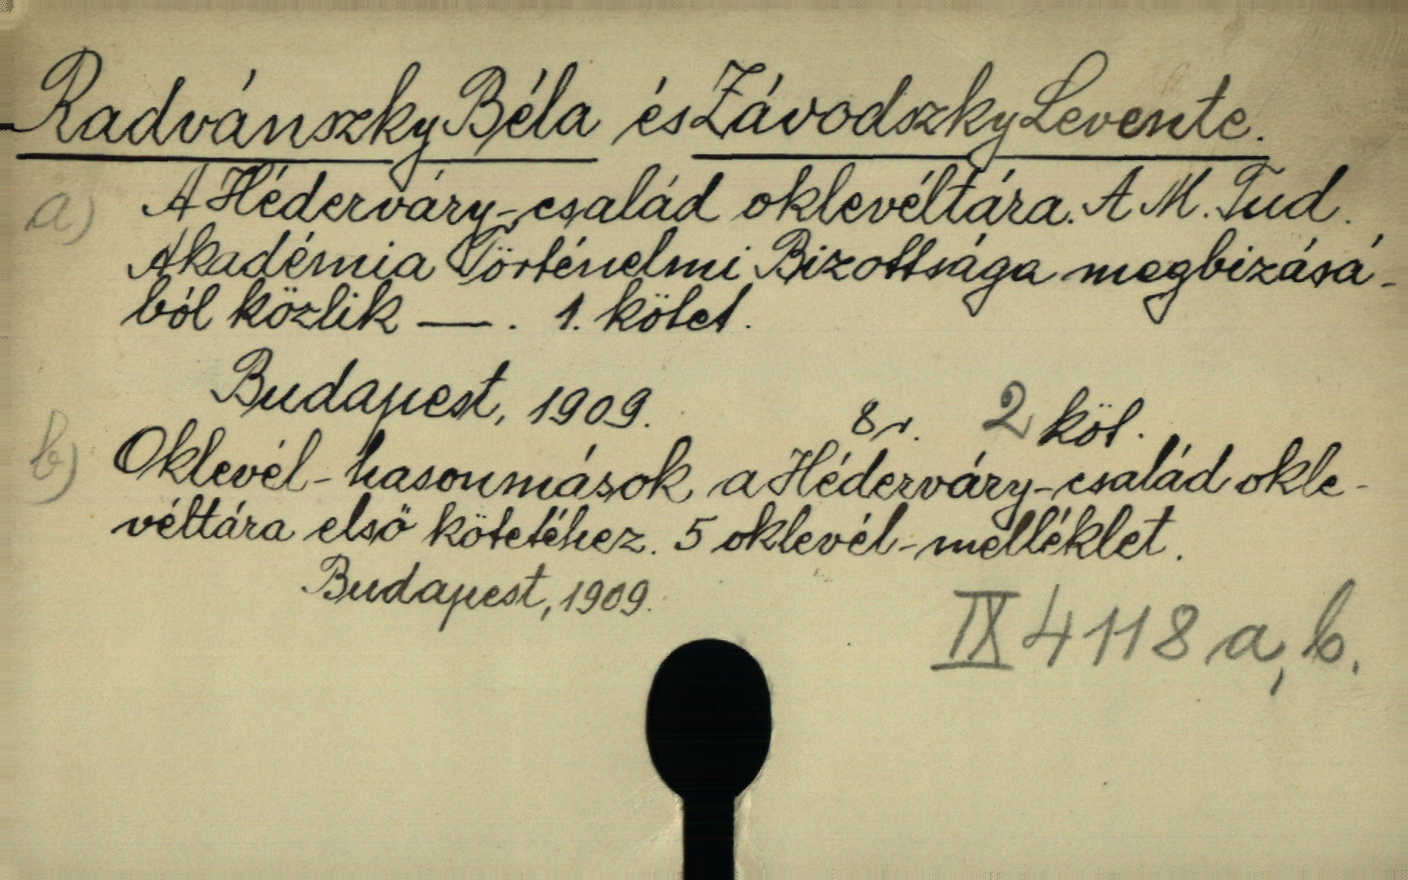 Radvánszky Béla és Závodszky Levente.
a) A Héderváry-család oklevéltára. A M. Tud.
Akadémia Történelmi Bizottsága megbizásá-
ból közlik —. 1. kötet.
Budapest, 1909. 8r. 2 köt.
b) Oklevél-hasonmások a Héderváry-család okle-
véltára első kötetéhez. 5 oklevél-melléklet.
Budapest, 1909.
IX 4118 a, b.